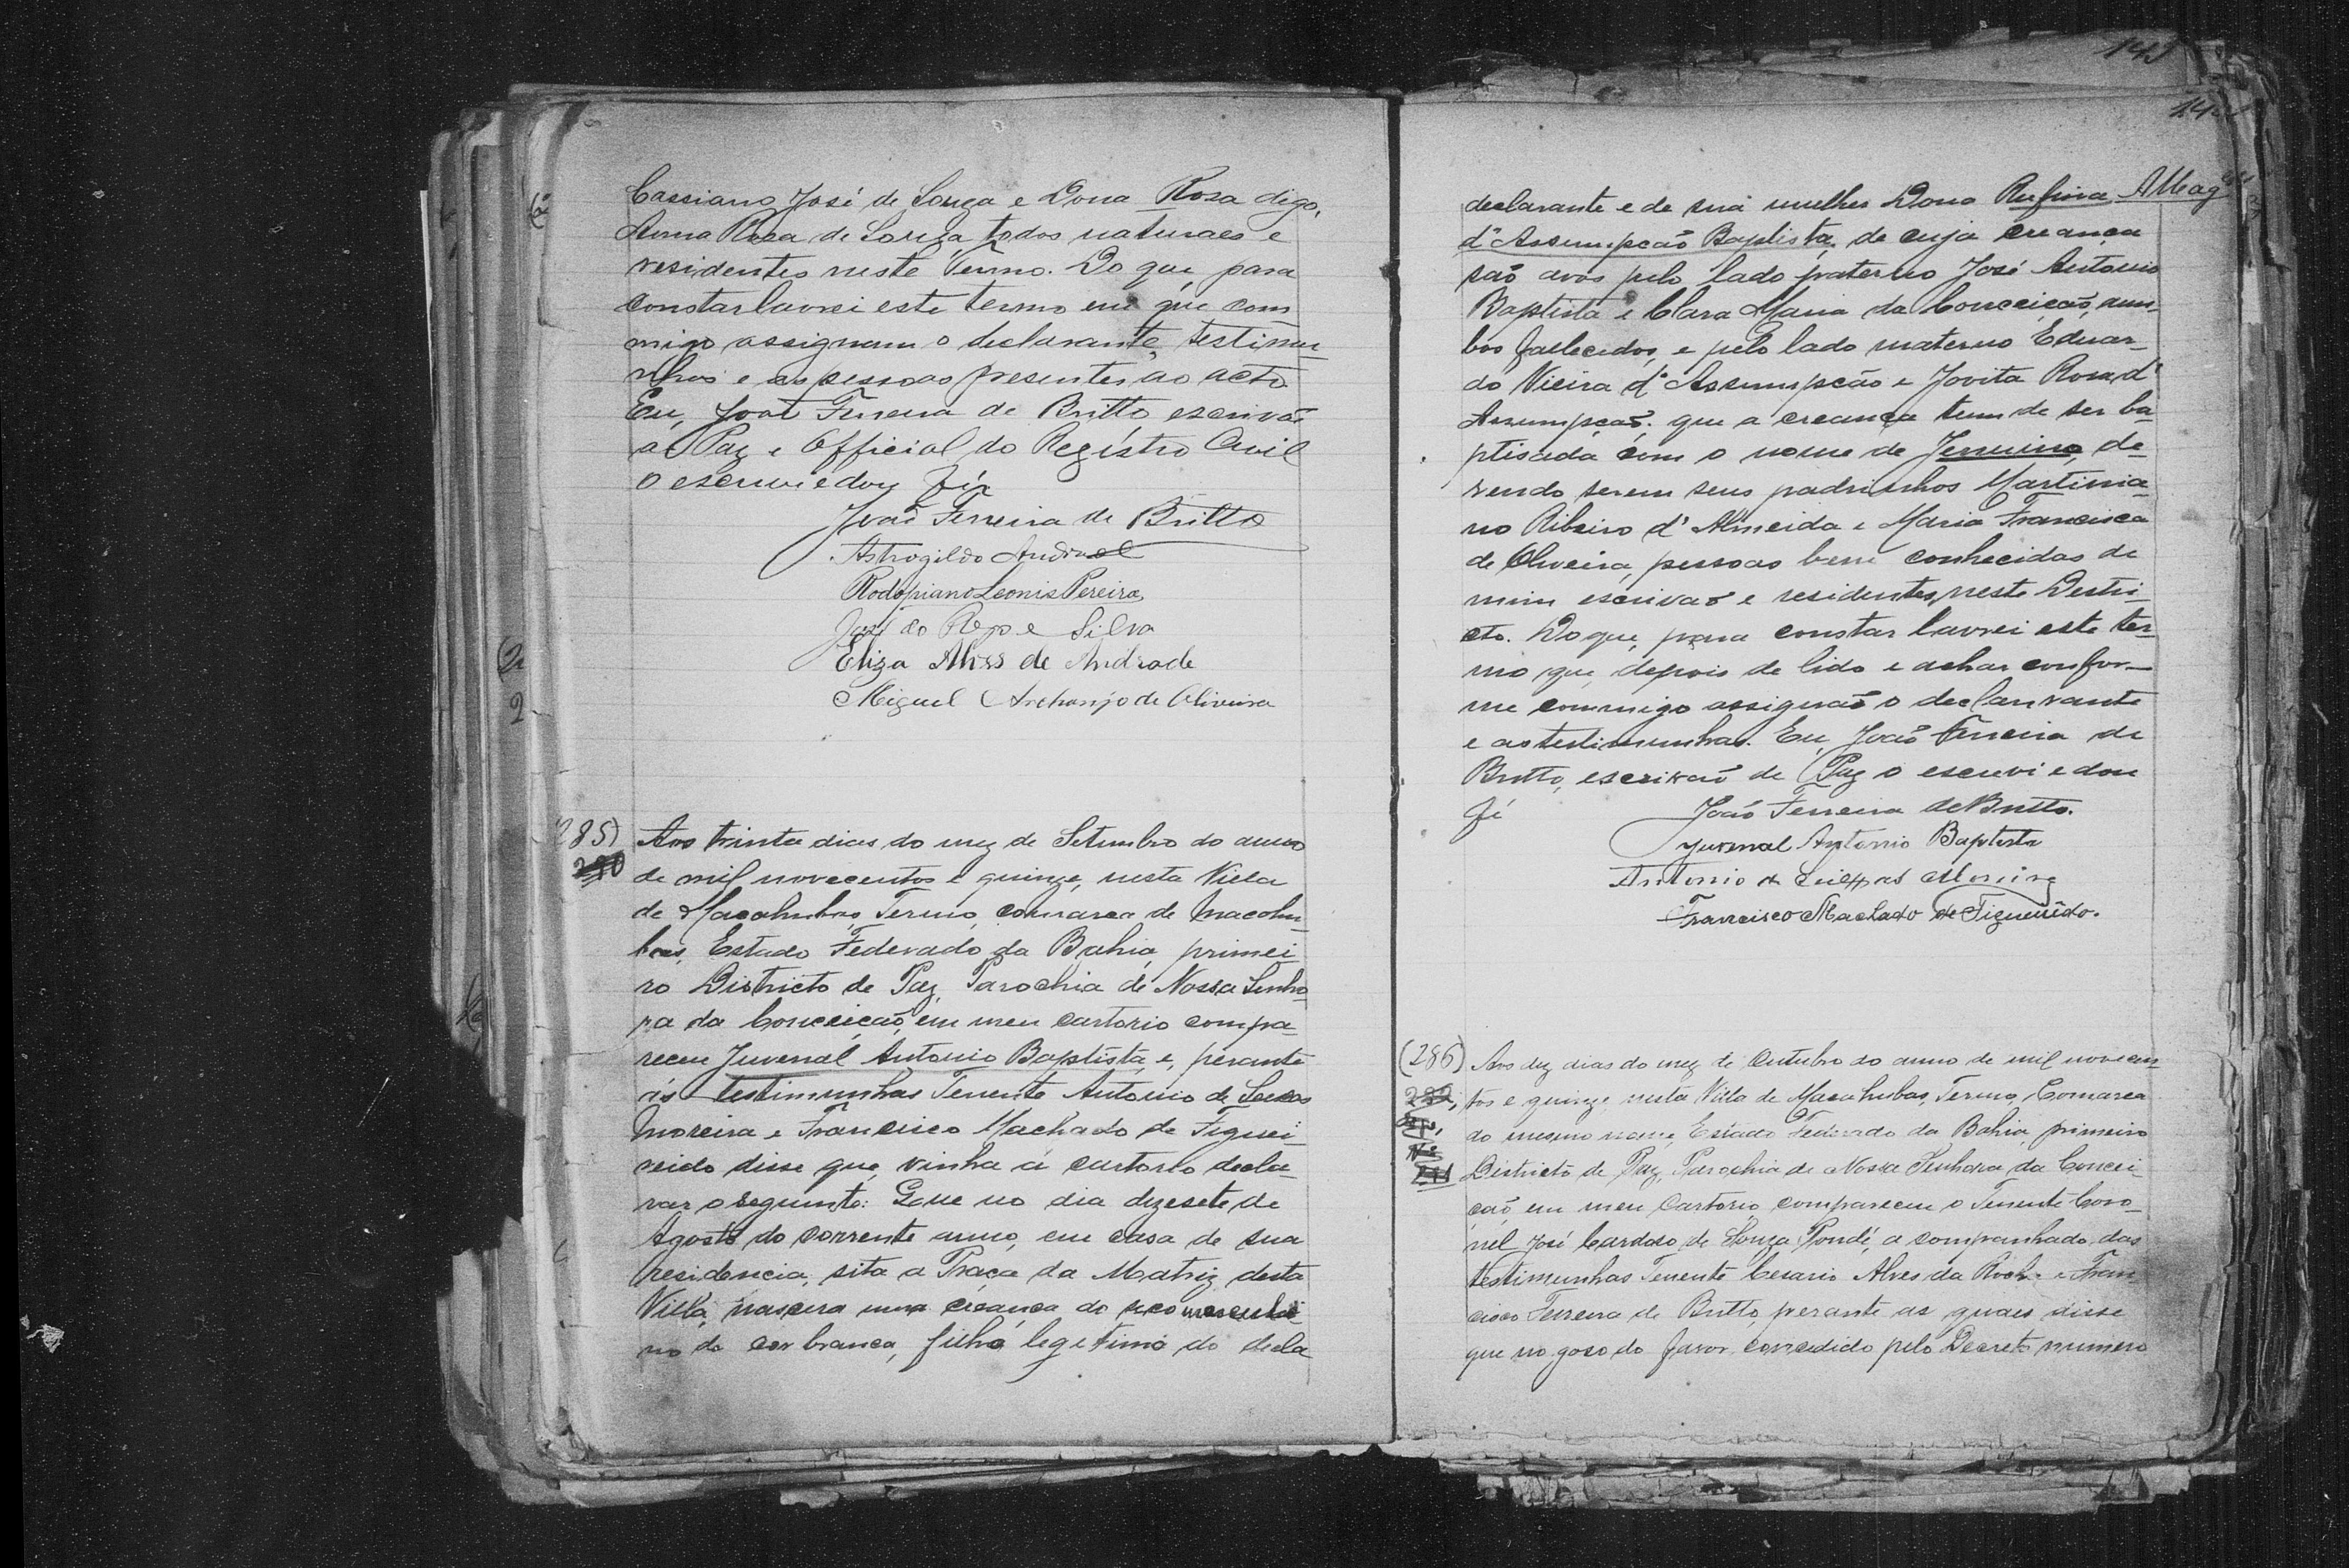 Cassiano José de Souza e Dona Rosa digo,
Anna Rosa de Souza todos naturaes e
residentes neste Termo. Do que, para
constar lavrei este termo em que com
migo assignam o declarante, testimu
nhas e as pessoas presentes ao acto
Eu, João Ferreira de Britto, escrivão
de Paz e Official do Registro Civil
o escrevi e dou fé
João Ferreira de Britto
Astrogildo Andrade
Rodopiano Leonis Pereira
José do Rego e Silva
Eliza Alves de Andrade
Miguel Archanjo de Oliveira
285)
Aos trinta dias do mez de Setembro do anno
de mil novecentos e quinze, nesta Villa
de Macahubas, Termo, comarca de Macahu-
bas, Estado Federado da Bahia, primei
ro Districto de Paz, Parochia de Nossa Senho
ra da Conceição, em meu cartorio compa-
receu Juvenal Antonio Baptista e, perante
as testimunhas Tenente Antonio de
Moreira e Francisco Machado de Figuei-
redo disse que vinha a cartorio decla-
rar o seguinte: Que no dia dezesete de
Agosto do corrente anno, em casa de sua
residencia, sita a Praça da Matriz desta
Villa, nascera uma creança do sexo masculi
no de cor branca, filho legitimo do decla
142
declarante e de sua mulher Dona Rufina
d'Assumpção Baptista, de cuja creança
são avós pelo lado paterno José Antonio
Baptista e Clara Maria da Conceição, am-
bos fallecidos, e pelo lado materno Eduar-
do Vieira d'Assumpção e Jovita Rosa d'
Assumpção; que a creança tem de ser ba-
ptisada com o nome de Jenuino, de-
vendo serem seus padrinhos Martinia-
no Ribeiro d'Almeida e Maria Francisca
de Oliveira, pessoas bem conhecidas de
mim escrivão e residentes neste Destri-
cto. Do que, para constar lavrei este ter-
mo que, depois de lido e achar confor-
me commigo assignaõ o declanrante
e as testimunhas. Eu, João Ferreira de
Britto, escrivão de Paz o escrevi e dou
fé
João Ferreira de Britto.
Juvenal Antonio Baptista
Antonio Moreira
Francisco Machado de Figueirêdo.
(286)
Aos dez dias do mez de Outubro do anno de mil novecen-
tos e quinze, nesta Villa de Macahubas, Termo, Comarca
do mesmo nome, Estado Federado da Bahia, primeiro
Districto de Paz, Parochia de Nossa Senhora da Concei-
ção em meu Cartorio compareceu o Tenente Coro-
nel José Cardoso de Souza Pondé, acompanhado das
testimunhas Tenente Cesario Alves da Rocha e Fran-
cisco Ferreira de Britto, perante as quaes disse
que no goso do favor concedido pelo Decreto numero